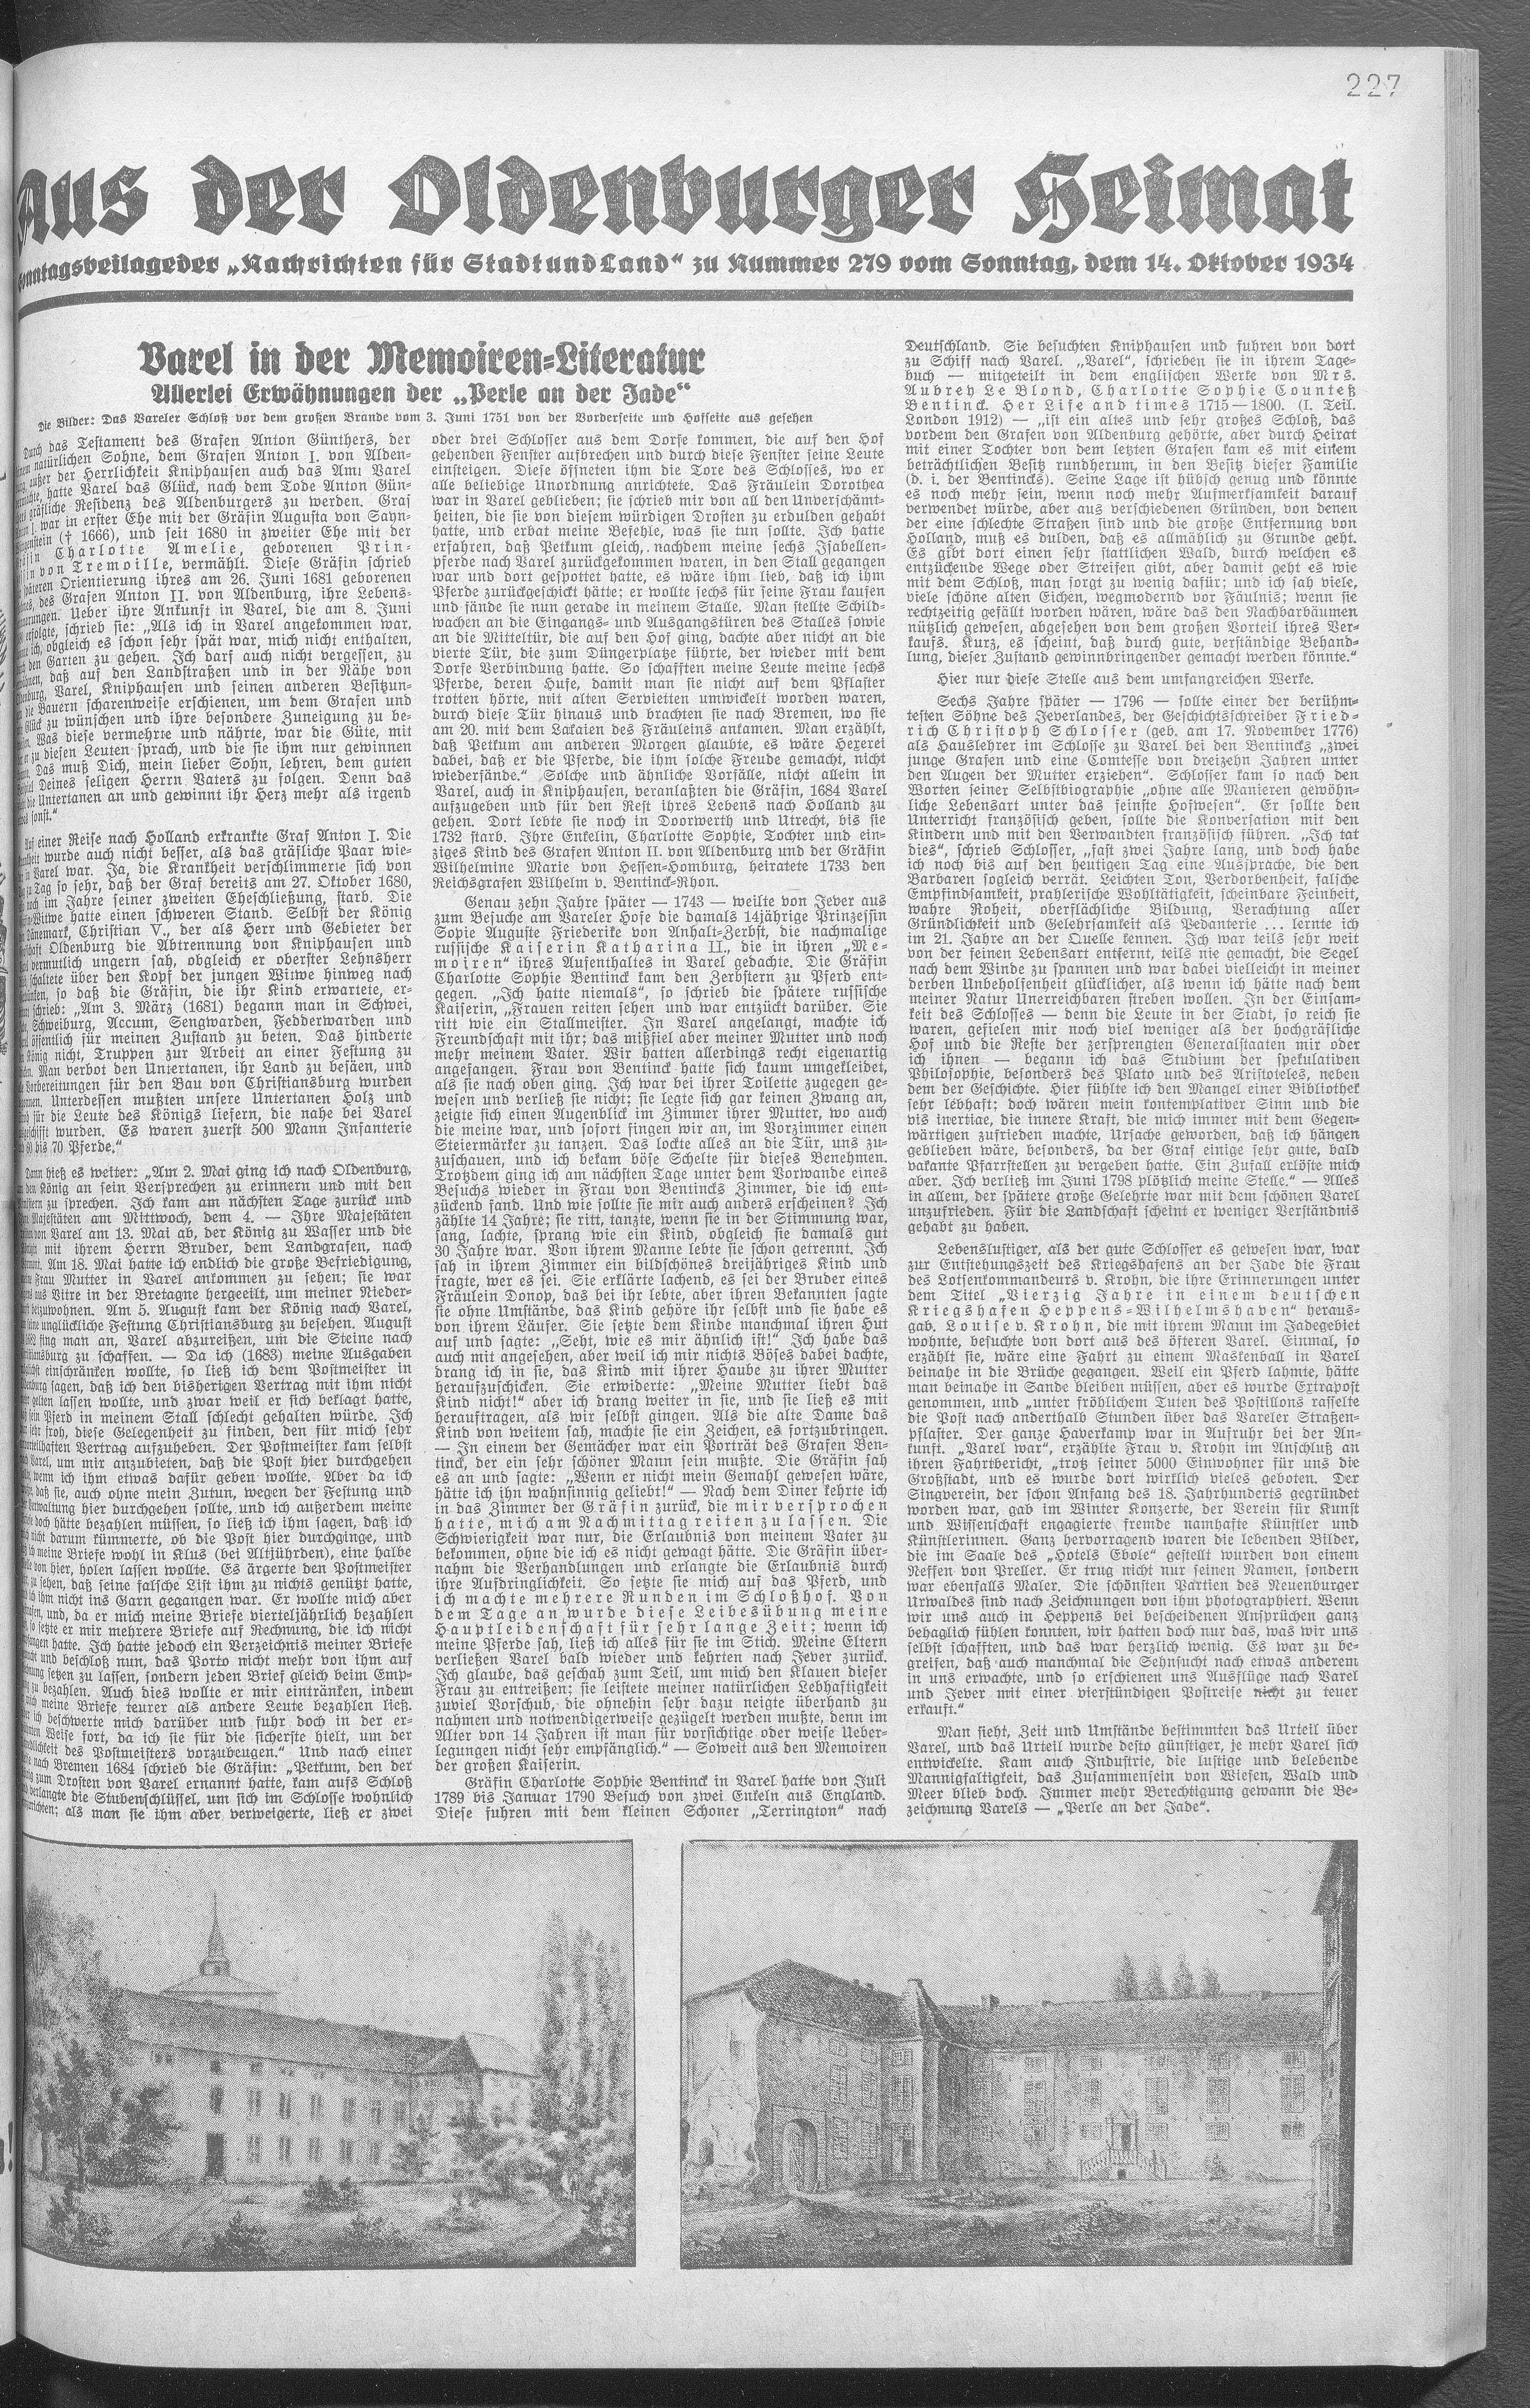 227
Aus der Oldenburger Heimat
Sonntagsbeilage der „Nachrichten für Stadt und Land“ zu Nummer 279 vom Sonntag, dem 14. Oktober 1934
Varel in der Memoiren-Literatur
Allerlei Erwähnungen der „Perle an der Jade“
Die Bilder: Das Vareler Schloß vor dem großen Brande vom 3. Juni 1751 von der Vorderseite und Hofseite aus gesehen
Durch das Testament des Grafen Anton Günthers, der
natürlichen Sohne, dem Grafen Anton I. von Alden-
außer der Herrlichkeit Kniphausen auch das Amt Varel
hatte Varel das Glück, nach dem Tode Anton Gün-
gräfliche Residenz des Aldenburgers zu werden. Graf
I. war in erster Ehe mit der Gräfin Augusta von Sayn-
(† 1666), und seit 1680 in zweiter Ehe mit der
Charlotte Amelie, geborenen Prin-
von Tremoille, vermählt. Diese Gräfin schrieb
späteren Orientierung ihres am 26. Juni 1681 geborenen
des Grafen Anton II. von Aldenburg, ihre Lebens-
Ueber ihre Ankunft in Varel, die am 8. Juni
erfolgte, schrieb sie: „Als ich in Varel angekommen war,
ich, obgleich es schon sehr spät war, mich nicht enthalten,
den Garten zu gehen. Ich darf auch nicht vergessen, zu
daß auf den Landstraßen und in der Nähe von
Varel, Kniphausen und seinen anderen Besitzun-
die Bauern scharenweise erschienen, um dem Grafen und
Glück zu wünschen und ihre besondere Zuneigung zu be-
Was diese vermehrte und nährte, war die Güte, mit
er zu diesen Leuten sprach, und die sie ihm nur gewinnen
Das muß Dich, mein lieber Sohn, lehren, dem guten
Deines seligen Herrn Vaters zu folgen. Denn das
die Untertanen an und gewinnt ihr Herz mehr als irgend
sonst.“
Auf einer Reise nach Holland erkrankte Graf Anton I. Die
wurde auch nicht besser, als das gräfliche Paar wie-
in Varel war. Ja, die Krankheit verschlimmerte sich von
zu Tag so sehr, daß der Graf bereits am 27. Oktober 1680,
noch im Jahre seiner zweiten Eheschließung, starb. Die
Witwe hatte einen schweren Stand. Selbst der König
Dänemark, Christian V., der als Herr und Gebieter der
Oldenburg die Abtrennung von Kniphausen und
vermutlich ungern sah, obgleich er oberster Lehnsherr
schaltete über den Kopf der jungen Witwe hinweg nach
so daß die Gräfin, die ihr Kind erwartete, er-
schrieb: „Am 3. März (1681) begann man in Schwei,
Schweiburg, Accum, Sengwarden, Fedderwarden und
öffentlich für meinen Zustand zu beten. Das hinderte
König nicht, Truppen zur Arbeit an einer Festung zu
Man verbot den Untertanen, ihr Land zu besäen, und
Vorbereitungen für den Bau von Christiansburg wurden
Unterdessen mußten unsere Untertanen Holz und
für die Leute des Königs liefern, die nahe bei Varel
wurden. Es waren zuerst 500 Mann Infanterie
bis 70 Pferde.“
Dann hieß es weiter: „Am 2. Mai ging ich nach Oldenburg,
den König an sein Versprechen zu erinnern und mit den
zu sprechen. Ich kam am nächsten Tage zurück und
Majestäten am Mittwoch, dem 4. — Ihre Majestäten
von Varel am 13. Mai ab, der König zu Wasser und die
mit ihrem Herrn Bruder, dem Landgrafen, nach
Am 18. Mai hatte ich endlich die große Befriedigung,
Frau Mutter in Varel ankommen zu sehen; sie war
aus Vitre in der Bretagne hergeeilt, um meiner Nieder-
beizuwohnen. Am 5. August kam der König nach Varel,
seine unglückliche Festung Christiansburg zu besehen. August
1682 fing man an, Varel abzureißen, um die Steine nach
zu schaffen. — Da ich (1683) meine Ausgaben
einschränken wollte, so ließ ich dem Postmeister in
sagen, daß ich den bisherigen Vertrag mit ihm nicht
gelten lassen wollte, und zwar weil er sich beklagt hatte,
sein Pferd in meinem Stall schlecht gehalten würde. Ich
sehr froh, diese Gelegenheit zu finden, den für mich sehr
Vertrag aufzuheben. Der Postmeister kam selbst
Varel, um mir anzubieten, daß die Post hier durchgehen
wenn ich ihm etwas dafür geben wollte. Aber da ich
daß sie, auch ohne mein Zutun, wegen der Festung und
Verwaltung hier durchgehen sollte, und ich außerdem meine
doch hätte bezahlen müssen, so ließ ich ihm sagen, daß ich
nicht darum kümmerte, ob die Post hier durchginge, und
meine Briefe wohl in Klus (bei Altjührden), eine halbe
von hier, holen lassen wollte. Es ärgerte den Postmeister
zu sehen, daß seine falsche List ihm zu nichts genützt hatte,
ich ihm nicht ins Garn gegangen war. Er wollte mich aber
und, da er mich meine Briefe vierteljährlich bezahlen
so setzte er mir mehrere Briefe auf Rechnung, die ich nicht
hatte. Ich hatte jedoch ein Verzeichnis meiner Briefe
und beschloß nun, das Porto nicht mehr von ihm auf
setzen zu lassen, sondern jeden Brief gleich beim Emp-
zu bezahlen. Auch dies wollte er mir eintränken, indem
meine Briefe teurer als andere Leute bezahlen ließ.
ich beschwerte mich darüber und fuhr doch in der er-
Weise fort, da ich sie für die sicherste hielt, um der
des Postmeisters vorzubeugen.“ Und nach einer
nach Bremen 1684 schrieb die Gräfin: „Petkum, den der
zum Drosten von Varel ernannt hatte, kam aufs Schloß
verlangte die Stubenschlüssel, um sich im Schlosse wohnlich
als man sie ihm aber verweigerte, ließ er zwei
oder drei Schlosser aus dem Dorfe kommen, die auf den Hof
gehenden Fenster aufbrechen und durch diese Fenster seine Leute
einsteigen. Diese öffneten ihm die Tore des Schlosses, wo er
alle beliebige Unordnung anrichtete. Das Fräulein Dorothea
war in Varel geblieben; sie schrieb mir von all den Unverschämt-
heiten, die sie von diesem würdigen Drosten zu erdulden gehabt
hatte, und erbat meine Befehle, was sie tun sollte. Ich hatte
erfahren, daß Petkum gleich, nachdem meine sechs Isabellen-
pferde nach Varel zurückgekommen waren, in den Stall gegangen
war und dort gespottet hatte, es wäre ihm lieb, daß ich ihm
Pferde zurückgeschickt hätte; er wollte sechs für seine Frau kaufen
und fände sie nun gerade in meinem Stalle. Man stellte Schild-
wachen an die Eingangs- und Ausgangstüren des Stalles sowie
an die Mitteltür, die auf den Hof ging, dachte aber nicht an die
vierte Tür, die zum Düngerplatze führte, der wieder mit dem
Dorfe Verbindung hatte. So schafften meine Leute meine sechs
Pferde, deren Hufe, damit man sie nicht auf dem Pflaster
trotten hörte, mit alten Servietten umwickelt worden waren,
durch diese Tür hinaus und brachten sie nach Bremen, wo sie
am 20. mit dem Lakaien des Fräuleins ankamen. Man erzählt,
daß Petkum am anderen Morgen glaubte, es wäre Hexerei
dabei, daß er die Pferde, die ihm solche Freude gemacht, nicht
wiederfände.“ Solche und ähnliche Vorfälle, nicht allein in
Varel, auch in Kniphausen, veranlaßten die Gräfin, 1684 Varel
aufzugeben und für den Rest ihres Lebens nach Holland zu
gehen. Dort lebte sie noch in Doorwerth und Utrecht, bis sie
1732 starb. Ihre Enkelin, Charlotte Sophie, Tochter und ein-
ziges Kind des Grafen Anton II. von Aldenburg und der Gräfin
Wilhelmine Marie von Hessen-Homburg, heiratete 1733 den
Reichsgrafen Wilhelm v. Bentinck-Rhon.
Genau zehn Jahre später — 1743 — weilte von Jever aus
zum Besuche am Vareler Hofe die damals 14jährige Prinzessin
Sopie Auguste Friederike von Anhalt-Zerbst, die nachmalige
russische Kaiserin Katharina II., die in ihren „Me-
moiren“ ihres Aufenthaltes in Varel gedachte. Die Gräfin
Charlotte Sophie Bentinck kam den Zerbstern zu Pferd ent-
gegen. „Ich hatte niemals“, so schrieb die spätere russische
Kaiserin, „Frauen reiten sehen und war entzückt darüber. Sie
ritt wie ein Stallmeister. In Varel angelangt, machte ich
Freundschaft mit ihr; das mißfiel aber meiner Mutter und noch
mehr meinem Vater. Wir hatten allerdings recht eigenartig
angefangen. Frau von Bentinck hatte sich kaum umgekleidet,
als sie nach oben ging. Ich war bei ihrer Toilette zugegen ge-
wesen und verließ sie nicht; sie legte sich gar keinen Zwang an,
zeigte sich einen Augenblick im Zimmer ihrer Mutter, wo auch
die meine war, und sofort fingen wir an, im Vorzimmer einen
Steiermärker zu tanzen. Das lockte alles an die Tür, uns zu-
zuschauen, und ich bekam böse Schelte für dieses Benehmen.
Trotzdem ging ich am nächsten Tage unter dem Vorwande eines
Besuchs wieder in Frau von Bentincks Zimmer, die ich ent-
zückend fand. Und wie sollte sie mir auch anders erscheinen? Ich
zählte 14 Jahre; sie ritt, tanzte, wenn sie in der Stimmung war,
sang, lachte, sprang wie ein Kind, obgleich sie damals gut
30 Jahre war. Von ihrem Manne lebte sie schon getrennt. Ich
sah in ihrem Zimmer ein bildschönes dreijähriges Kind und
fragte, wer es sei. Sie erklärte lachend, es sei der Bruder eines
Fräulein Donop, das bei ihr lebte, aber ihren Bekannten sagte
sie ohne Umstände, das Kind gehöre ihr selbst und sie habe es
von ihrem Läufer. Sie setzte dem Kinde manchmal ihren Hut
auf und sagte: „Seht, wie es mir ähnlich ist!“ Ich habe das
auch mit angesehen, aber weil ich mir nichts Böses dabei dachte,
drang ich in sie, das Kind mit ihrer Haube zu ihrer Mutter
heraufzuschicken. Sie erwiderte: „Meine Mutter liebt das
Kind nicht!“ aber ich drang weiter in sie, und sie ließ es mit
herauftragen, als wir selbst gingen. Als die alte Dame das
Kind von weitem sah, machte sie ein Zeichen, es fortzubringen.
— In einem der Gemächer war ein Porträt des Grafen Ben-
tinck, der ein sehr schöner Mann sein mußte. Die Gräfin sah
es an und sagte: „Wenn er nicht mein Gemahl gewesen wäre,
hätte ich ihn wahnsinnig geliebt!“ — Nach dem Diner kehrte ich
in das Zimmer der Gräfin zurück, die mir versprochen
hatte, mich am Nachmittag reiten zu lassen. Die
Schwierigkeit war nur, die Erlaubnis von meinem Vater zu
bekommen, ohne die ich es nicht gewagt hätte. Die Gräfin über-
nahm die Verhandlungen und erlangte die Erlaubnis durch
ihre Aufdringlichkeit. So setzte sie mich auf das Pferd, und
ich machte mehrere Runden im Schloßhof. Von
dem Tage an wurde diese Leibesübung meine
Hauptleidenschaft für sehr lange Zeit; wenn ich
meine Pferde sah, ließ ich alles für sie im Stich. Meine Eltern
verließen Varel bald wieder und kehrten nach Jever zurück.
Ich glaube, das geschah zum Teil, um mich den Klauen dieser
Frau zu entreißen; sie leistete meiner natürlichen Lebhaftigkeit
zuviel Vorschub, die ohnehin sehr dazu neigte überhand zu
nahmen und notwendigerweise gezügelt werden mußte, denn im
Alter von 14 Jahren ist man für vorsichtige oder weise Ueber-
legungen nicht sehr empfänglich.“ — Soweit aus den Memoiren
der großen Kaiserin.
Gräfin Charlotte Sophie Bentinck in Varel hatte von Juli
1789 bis Januar 1790 Besuch von zwei Enkeln aus England.
Diese fuhren mit dem kleinen Schoner „Terrington“ nach
Deutschland. Sie besuchten Kniphausen und fuhren von dort
zu Schiff nach Varel. „Varel“, schrieben sie in ihrem Tage-
buch — mitgeteilt in dem englischen Werke von Mrs.
Aubrey Le Blond, Charlotte Sophie Counteß
Bentinck. Her Life and times 1715—1800. (I. Teil.
London 1912) — „ist ein altes und sehr großes Schloß, das
vordem den Grafen von Aldenburg gehörte, aber durch Heirat
mit einer Tochter von dem letzten Grafen kam es mit einem
beträchtlichen Besitz rundherum, in den Besitz dieser Familie
(d. i. der Bentincks). Seine Lage ist hübsch genug und könnte
es noch mehr sein, wenn noch mehr Aufmerksamkeit darauf
verwendet würde, aber aus verschiedenen Gründen, von denen
der eine schlechte Straßen sind und die große Entfernung von
Holland, muß es dulden, daß es allmählich zu Grunde geht.
Es gibt dort einen sehr stattlichen Wald, durch welchen es
entzückende Wege oder Streifen gibt, aber damit geht es wie
mit dem Schloß, man sorgt zu wenig dafür; und ich sah viele,
viele schöne alten Eichen, wegmodernd vor Fäulnis; wenn sie
rechtzeitig gefällt worden wären, wäre das den Nachbarbäumen
nützlich gewesen, abgesehen von dem großen Vorteil ihres Ver-
kaufs. Kurz, es scheint, daß durch gute, verständige Behand-
lung, dieser Zustand gewinnbringender gemacht werden könnte.“
Hier nur diese Stelle aus dem umfangreichen Werke.
Sechs Jahre später — 1796 — sollte einer der berühm-
testen Söhne des Jeverlandes, der Geschichtsschreiber Fried-
rich Christoph Schlosser (geb. am 17. November 1776)
als Hauslehrer im Schlosse zu Varel bei den Bentincks „zwei
junge Grafen und eine Comtesse von dreizehn Jahren unter
den Augen der Mutter erziehen“. Schlosser kam so nach den
Worten seiner Selbstbiographie „ohne alle Manieren gewöhn-
liche Lebensart unter das feinste Hofwesen“. Er sollte den
Unterricht französisch geben, sollte die Konversation mit den
Kindern und mit den Verwandten französisch führen. „Ich tat
dies“, schrieb Schlosser, „fast zwei Jahre lang, und doch habe
ich noch bis auf den heutigen Tag eine Aussprache, die den
Barbaren sogleich verrät. Leichten Ton, Verdorbenheit, falsche
Empfindsamkeit, prahlerische Wohltätigkeit, scheinbare Feinheit,
wahre Roheit, oberflächliche Bildung, Verachtung aller
Gründlichkeit und Gelehrsamkeit als Pedanterie ... lernte ich
im 21. Jahre an der Quelle kennen. Ich war teils sehr weit
von der feinen Lebensart entfernt, teils nie gemacht, die Segel
nach dem Winde zu spannen und war dabei vielleicht in meiner
derben Unbeholfenheit glücklicher, als wenn ich hätte nach dem
meiner Natur Unerreichbaren streben wollen. In der Einsam-
keit des Schlosses — denn die Leute in der Stadt, so reich sie
waren, gefielen mir noch viel weniger als der hochgräfliche
Hof und die Reste der zersprengten Generalstaaten mir oder
ich ihnen — begann ich das Studium der spekulativen
Philosophie, besonders des Plato und des Aristoteles, neben
dem der Geschichte. Hier fühlte ich den Mangel einer Bibliothek
sehr lebhaft; doch wären mein kontemplativer Sinn und die
bis inertiae, die innere Kraft, die mich immer mit dem Gegen-
wärtigen zufrieden machte, Ursache geworden, daß ich hängen
geblieben wäre, besonders, da der Graf einige sehr gute, bald
vakante Pfarrstellen zu vergeben hatte. Ein Zufall erlöste mich
aber. Ich verließ im Juni 1798 plötzlich meine Stelle.“ — Alles
in allem, der spätere große Gelehrte war mit dem schönen Varel
unzufrieden. Für die Landschaft scheint er weniger Verständnis
gehabt zu haben.
Lebenslustiger, als der gute Schlosser es gewesen war, war
zur Entstehungszeit des Kriegshafens an der Jade die Frau
des Lotsenkommandeurs v. Krohn, die ihre Erinnerungen unter
dem Titel „Vierzig Jahre in einem deutschen
Kriegshafen Heppens-Wilhelmshaven“ heraus-
gab. Louise v. Krohn, die mit ihrem Mann im Jadegebiet
wohnte, besuchte von dort aus des öfteren Varel. Einmal, so
erzählt sie, wäre eine Fahrt zu einem Maskenball in Varel
beinahe in die Brüche gegangen. Weil ein Pferd lahmte, hätte
man beinahe in Sande bleiben müssen, aber es wurde Extrapost
genommen, und „unter fröhlichem Tuten des Postillons rasselte
die Post nach anderthalb Stunden über das Vareler Straßen-
pflaster. Der ganze Haverkamp war in Aufruhr bei der An-
kunft. „Varel war“, erzählte Frau v. Krohn im Anschluß an
ihren Fahrtbericht, „trotz seiner 5000 Einwohner für uns die
Großstadt, und es wurde dort wirklich vieles geboten. Der
Singverein, der schon Anfang des 18. Jahrhunderts gegründet
worden war, gab im Winter Konzerte, der Verein für Kunst
und Wissenschaft engagierte fremde namhafte Künstler und
Künstlerinnen. Ganz hervorragend waren die lebenden Bilder,
die im Saale des „Hotels Ebole“ gestellt wurden von einem
Neffen von Preller. Er trug nicht nur seinen Namen, sondern
war ebenfalls Maler. Die schönsten Partien des Neuenburger
Urwaldes sind nach Zeichnungen von ihm photographiert. Wenn
wir uns auch in Heppens bei bescheidenen Ansprüchen ganz
behaglich fühlen konnten, wir hatten doch nur das, was wir uns
selbst schafften, und das war herzlich wenig. Es war zu be-
greifen, daß auch manchmal die Sehnsucht nach etwas anderem
in uns erwachte, und so erschienen uns Ausflüge nach Varel
und Jever mit einer vierstündigen Postreise nicht zu teuer
erkauft.“
Man sieht, Zeit und Umstände bestimmten das Urteil über
Varel, und das Urteil wurde desto günstiger, je mehr Varel sich
entwickelte. Kam auch Industrie, die lustige und belebende
Mannigfaltigkeit, das Zusammensein von Wiesen, Wald und
Meer blieb doch. Immer mehr Berechtigung gewann die Be-
zeichnung Varels — „Perle an der Jade“.